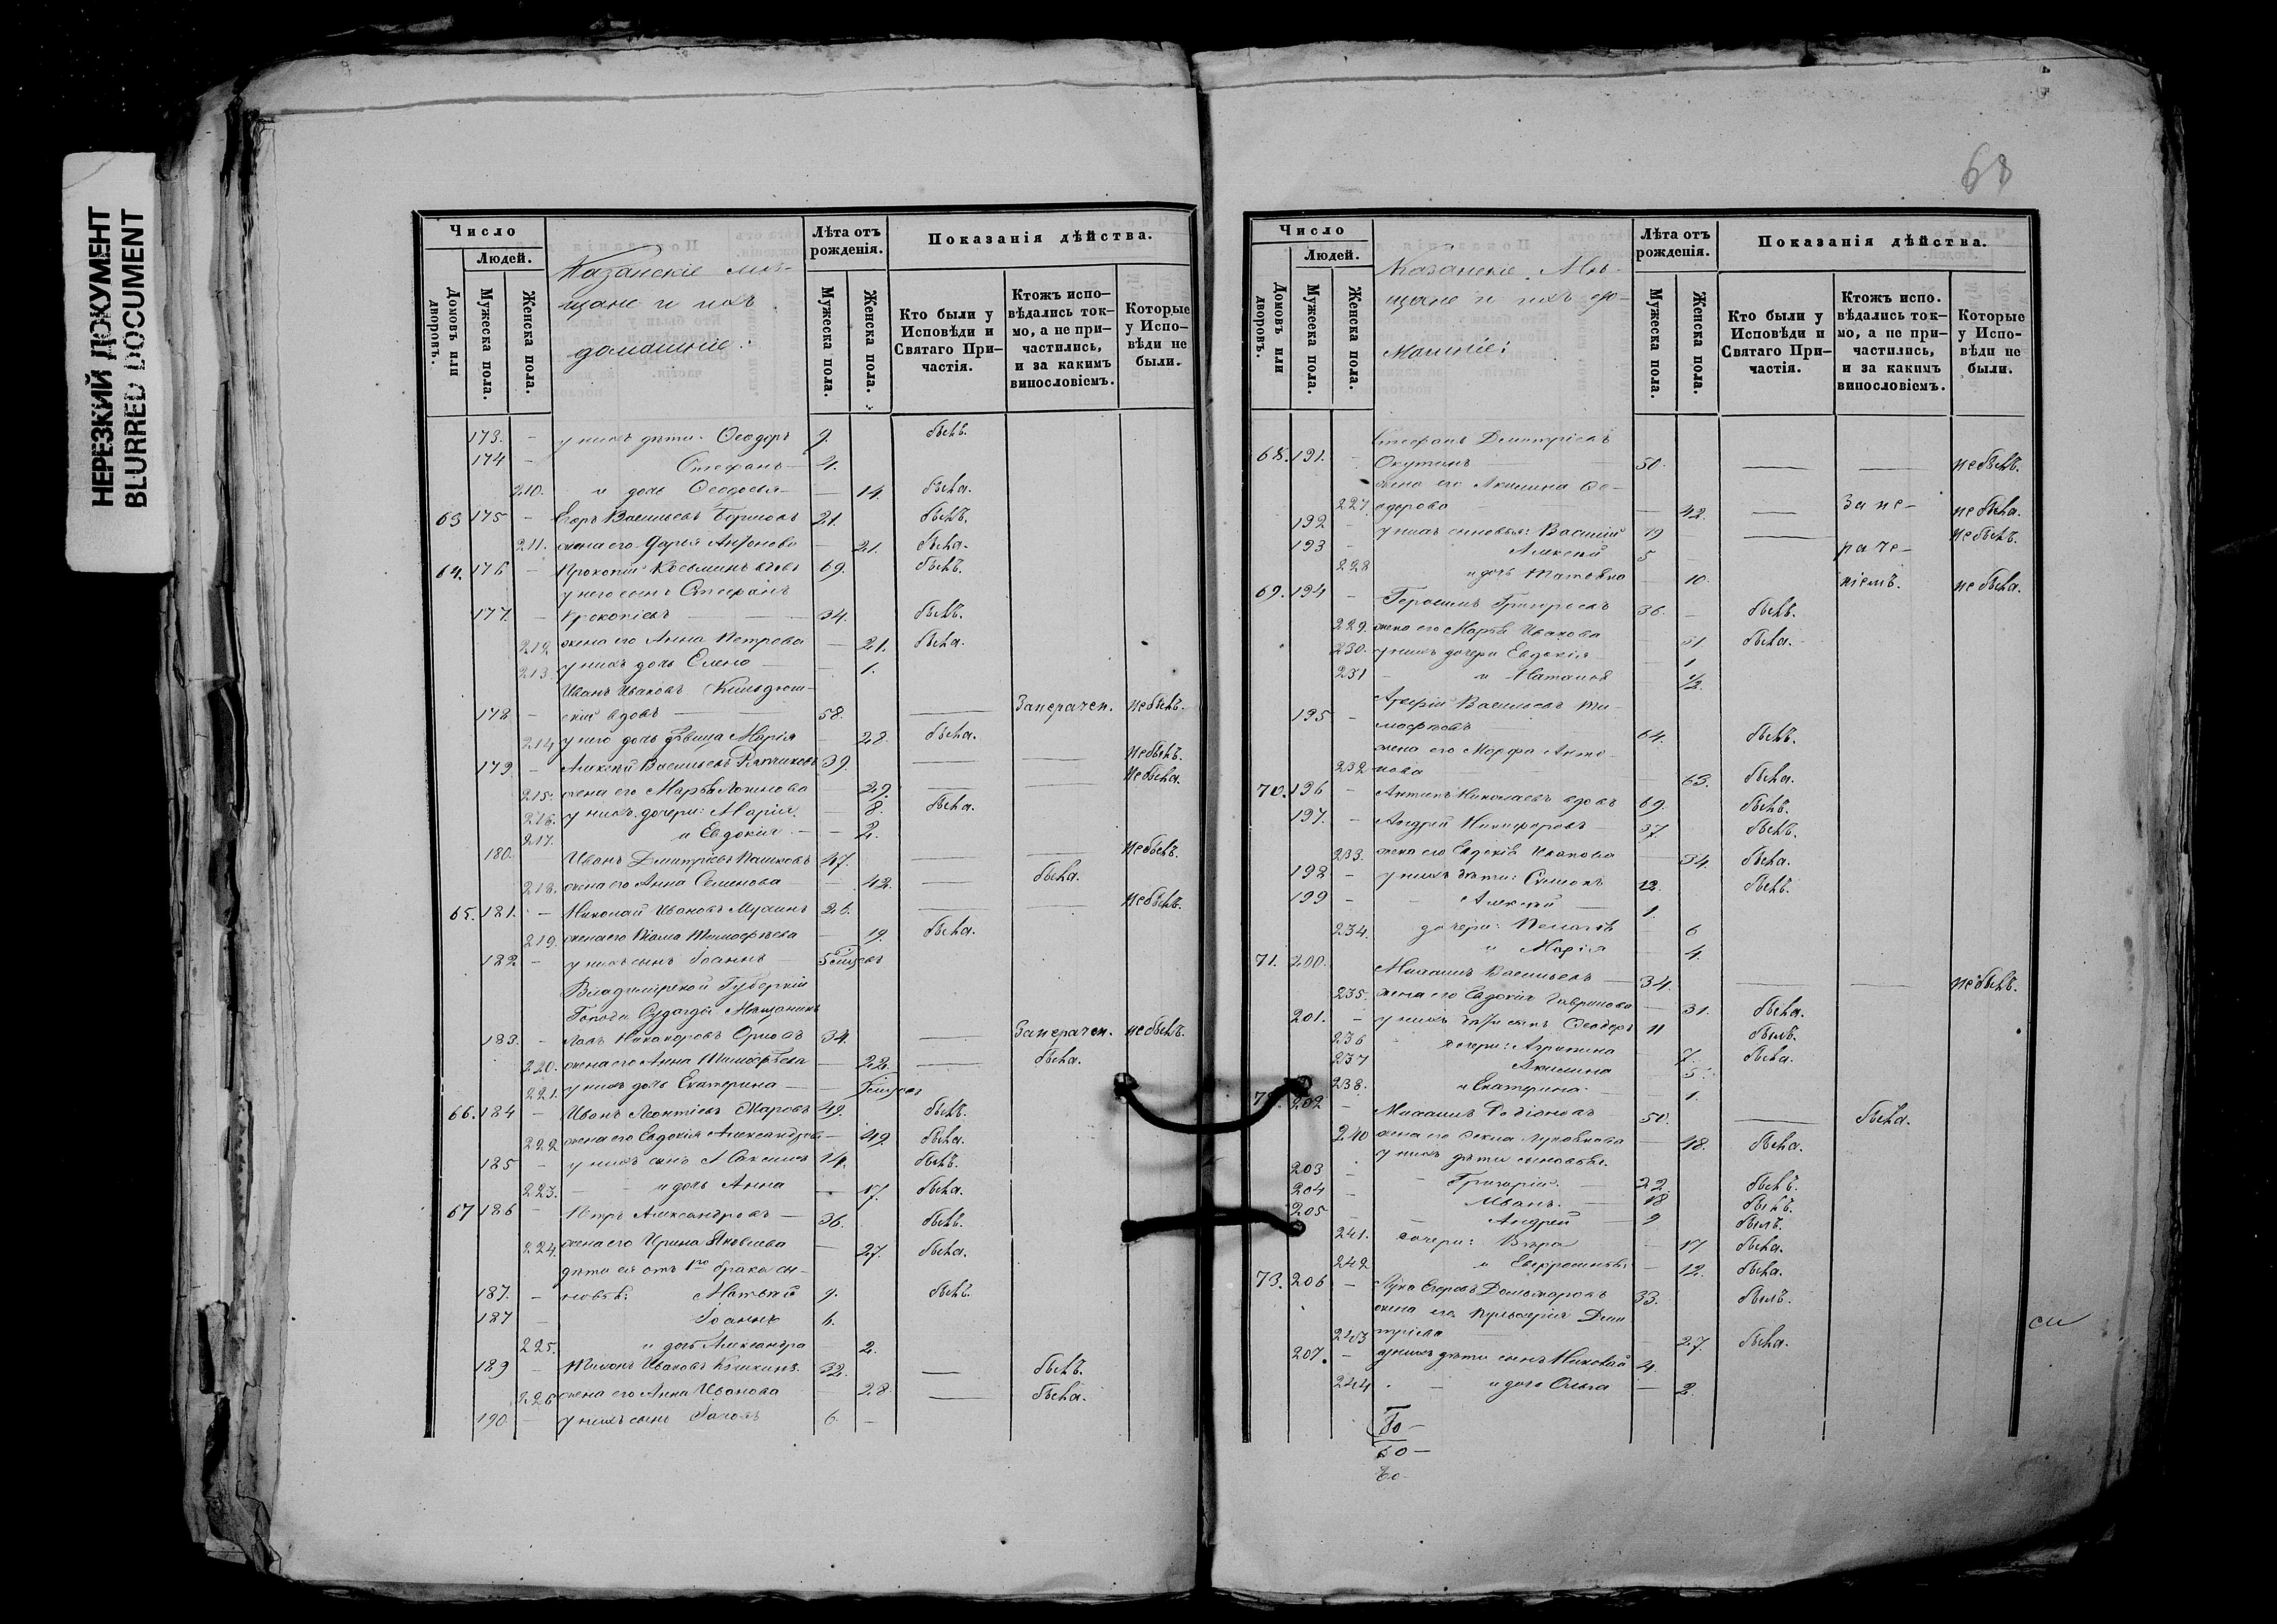 НЕРЕЗКИЙ ДОКУМЕНТ
BLURRED DOCUMENT
68
Число
Людей.
Домовъ или дворовъ.
Мужеска пола.
Женска пола.
Казанскіе мѣ-
щане и ихъ
домашніе:
Лѣта отъ рожденія.
Мужеска пола.
Женска пола.
Показанія дѣйства.
Кто были у Исповѣди и Святаго При-частія.
Ктожъ испо-вѣдались ток-мо, а не при-частились, и за какимъ винословіемъ.
Которые у Испо-вѣди не были.
173. – у нихъ дѣти: Ѳеодоръ 9. былъ.
174 – Стефанъ – 4.
210. и дочь Ѳеодосья – – 14. была.
63 175 – Егоръ Васильевъ 21. былъ.
211. жена его Дарья Антонова – 21. была.
64. 176 – Прокопій Косьминъ вдовъ 69. былъ.
у него сынъ Стефанъ
177. – Прокопіевъ – – 34. былъ.
212 жена его Анна Петрова – 21. была.
213. у нихъ дочь Елена – – 1.
Иванъ Ивановъ
178 – скій вдовъ – 58. – Занерачен. небылъ.
214 у него дочь дѣвица Марія – 28. была.
179. – Алексѣй Васильевъ 39. – – небылъ.
215. жена его Марѳа Логинова – 29. – – небыла.
216. у нихъ дочери: Марія. – 8. была.
217. и Евдокія. – – 2.
180. Иванъ Димитріевъ Пашковъ 47. – – небылъ.
218. жена его Анна Семенова – – 42. – была.
65. 181. – Николай Ивановъ Мухинъ 26. – – небылъ.
219. жена его Тимоѳеева – 19. была.
182 – у нихъ сынъ Іоаннъ – 5 мѣсяц.
Владимірской Губерніи
Города Судогды Мѣщанинъ
183. – Никаноровъ Орловъ 34. – Занерачен. небылъ.
220. жена его Анна Тимоѳеева – 22. – была.
221. у нихъ дочь Екатерина – –
66. 184 – Иванъ Леонтіевъ Жаровъ 49. былъ.
222 жена его Евдокія Александрова – 49. была.
185 – у нихъ сынъ Максимъ 14. былъ.
223. – – и дочь Анна – 17. была.
67 186 – Петръ Александровъ – 36. былъ.
224. жена его Ирина Яковлева – 27. была.
дѣти ея отъ 1го брака сы-
187. – новья: Матвѣй 9. былъ.
187 – Іоаннъ 6.
225. и дочь Александра 2.
189 – Ивановъ Кошкинъ. 32. – былъ.
226 жена его Анна Иванова – 28. – была.
190 – у нихъ сынъ 6. –
Число
Людей.
Домовъ или дворовъ.
Мужеска пола.
Женска пола.
Казанскіе Мѣ-
щане и ихъ до-
машніе:
Лѣта отъ рожденія.
Мужеска пола.
Женска пола.
Показанія дѣйства.
Кто были у Исповѣди и Святаго При-частія.
Ктожъ испо-вѣдались ток-мо, а не при-частились, и за какимъ винословіемъ.
Которые у Испо-вѣди не были.
Стефанъ Димитріевъ
68. 191. – Окутинъ – 50. – – небылъ.
жена его Акилина Ѳе-
227. одорова – 42. – За не- небыла.
192 – у нихъ сыновья: Василій 19 – небылъ.
193 – Алексѣй 5 – раче-
228 и дочь Татьяна – 10. ніемъ. небыла.
69. 194 – Герасимъ Григорьевъ 36. – былъ.
229. жена его Марѳа Иванова 31. была.
230. у нихъ дочери Евдокія – 1
231 – и Наталія – 1/2.
Васильевъ Ти-
195 – моѳеевъ – 64. былъ.
жена его Марѳа Анто-
232 нова – 63. была.
70. 196 – Антипъ Николаевъ вдовъ 69. былъ.
197. – Андрей Никифоровъ – 37. былъ.
233. жена его Евдокія Иванова – 34. была.
198 – у нихъ дѣти: Симеонъ 12. былъ.
199 – – Алексѣй – 1.
234. дочери: Пелагія – 6
и Марія – 4.
71. 200. Михаилъ Васильевъ – 34. – – небылъ.
235. жена его Евдокія Гаврилова – 31. была.
201. – у нихъ дѣти сынъ Ѳеодоръ 11 былъ.
236 – дочери: Агрипина – 7. была.
237 Акилина – 5.
238. и Екатерина – 1.
72. 202 – Михаилъ Родіоновъ 50. – была.
240 жена его Ѳекла – 48. была.
у нихъ дѣти сыновья:
203 – – Григорій. – 22. былъ.
204 – Иванъ. – 18 былъ.
205 – – Андрей – 9 былъ.
241. дочери: Вѣра – 17 была.
242 и Евфросинія – 12. была.
73. 206 – Лука Егоровъ 33. былъ.
жена его Пульхерія Дми
243 тріева – 27 была.
207. – у нихъ дѣти сынъ Николай 4.
244 – и дочь Ольга – 2.
60 –